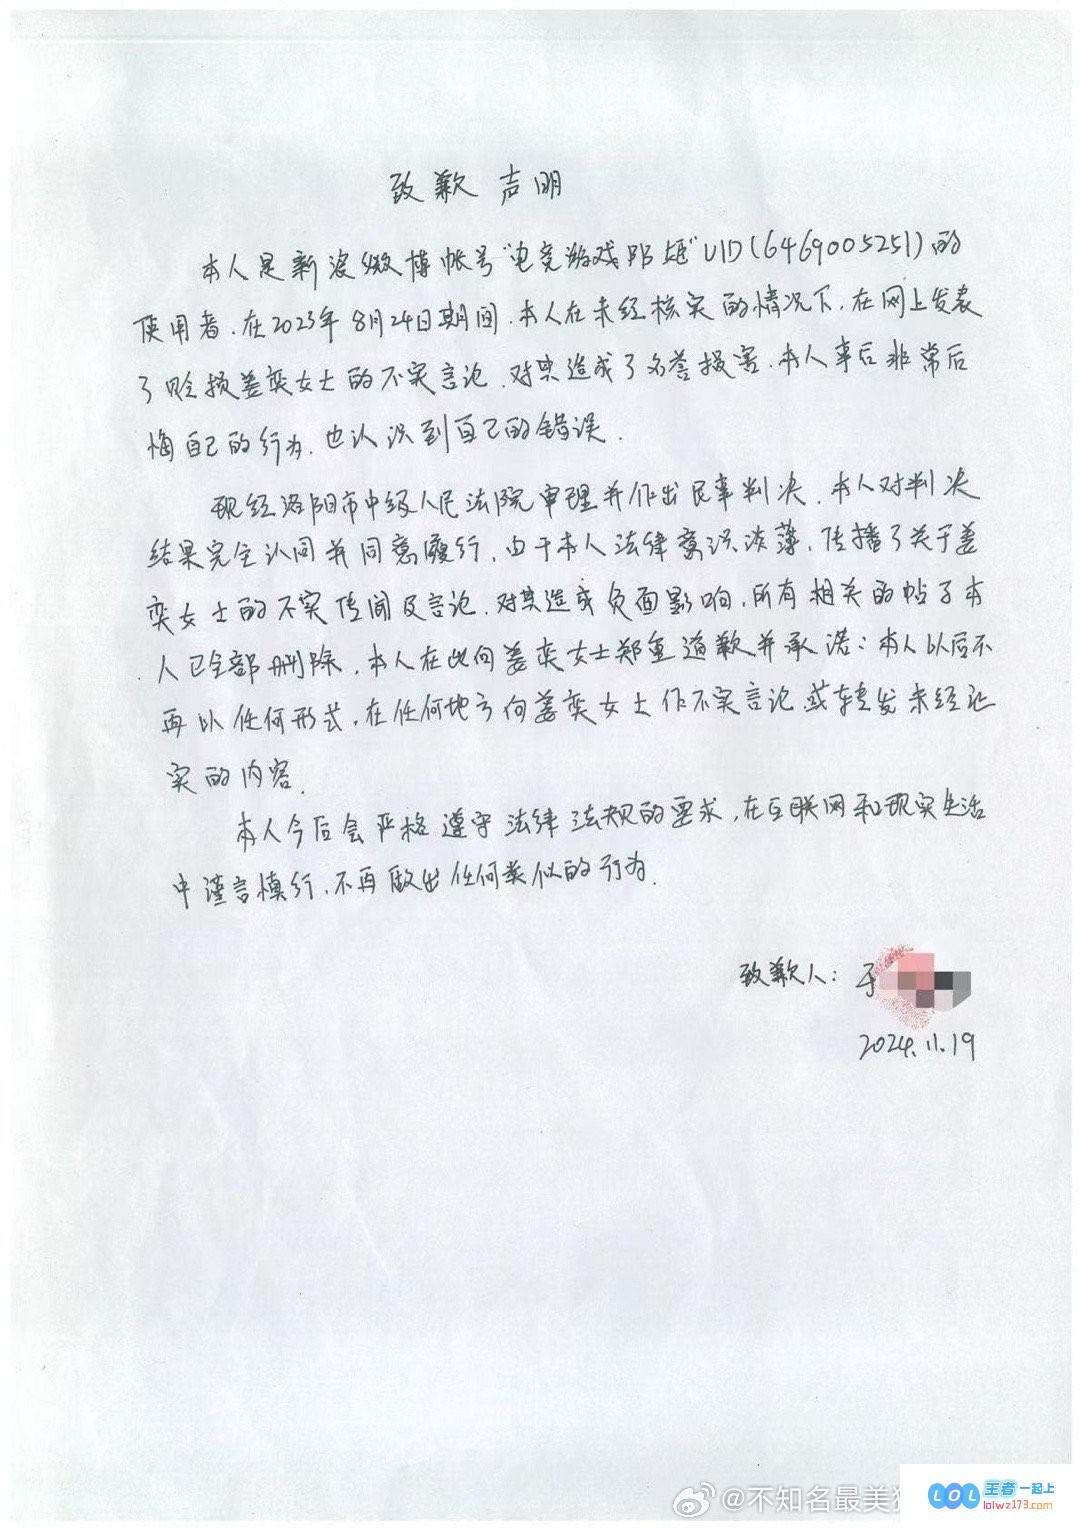 致歉声明
本人是新浪微博帐号"电竞游戏那姬"UID(6469005251)的
使用者.在2023年8月24日期间.本人在未经核实的情况下.在网上发表
了贬损姜奕女士的不实言论.对其造成了名誉损害.本人事后非常后
悔自己的行为.也认识到自己的错误.
现经洛阳市中级人民法院审理并作出民事判决.本人对判决
结果完全认同并同意履行,由于本人法律意识淡薄,传播了关于姜
奕女士的不实传闻及言论.对其造成负面影响,所有相关的帖子本
人已全部删除,本人在此向姜奕女士郑重道歉并承诺:本人以后不
再以任何形式,在任何地方向姜奕女士作不实言论或转发未经证
实的内容.
本人今后会严格遵守法律法规的要求,在互联网和现实生活
中谨言慎行,不再做出任何类似的行为.
致歉人:于
2024.11.19
@不知名最美
LOL 王者一起上
lolwz173.com